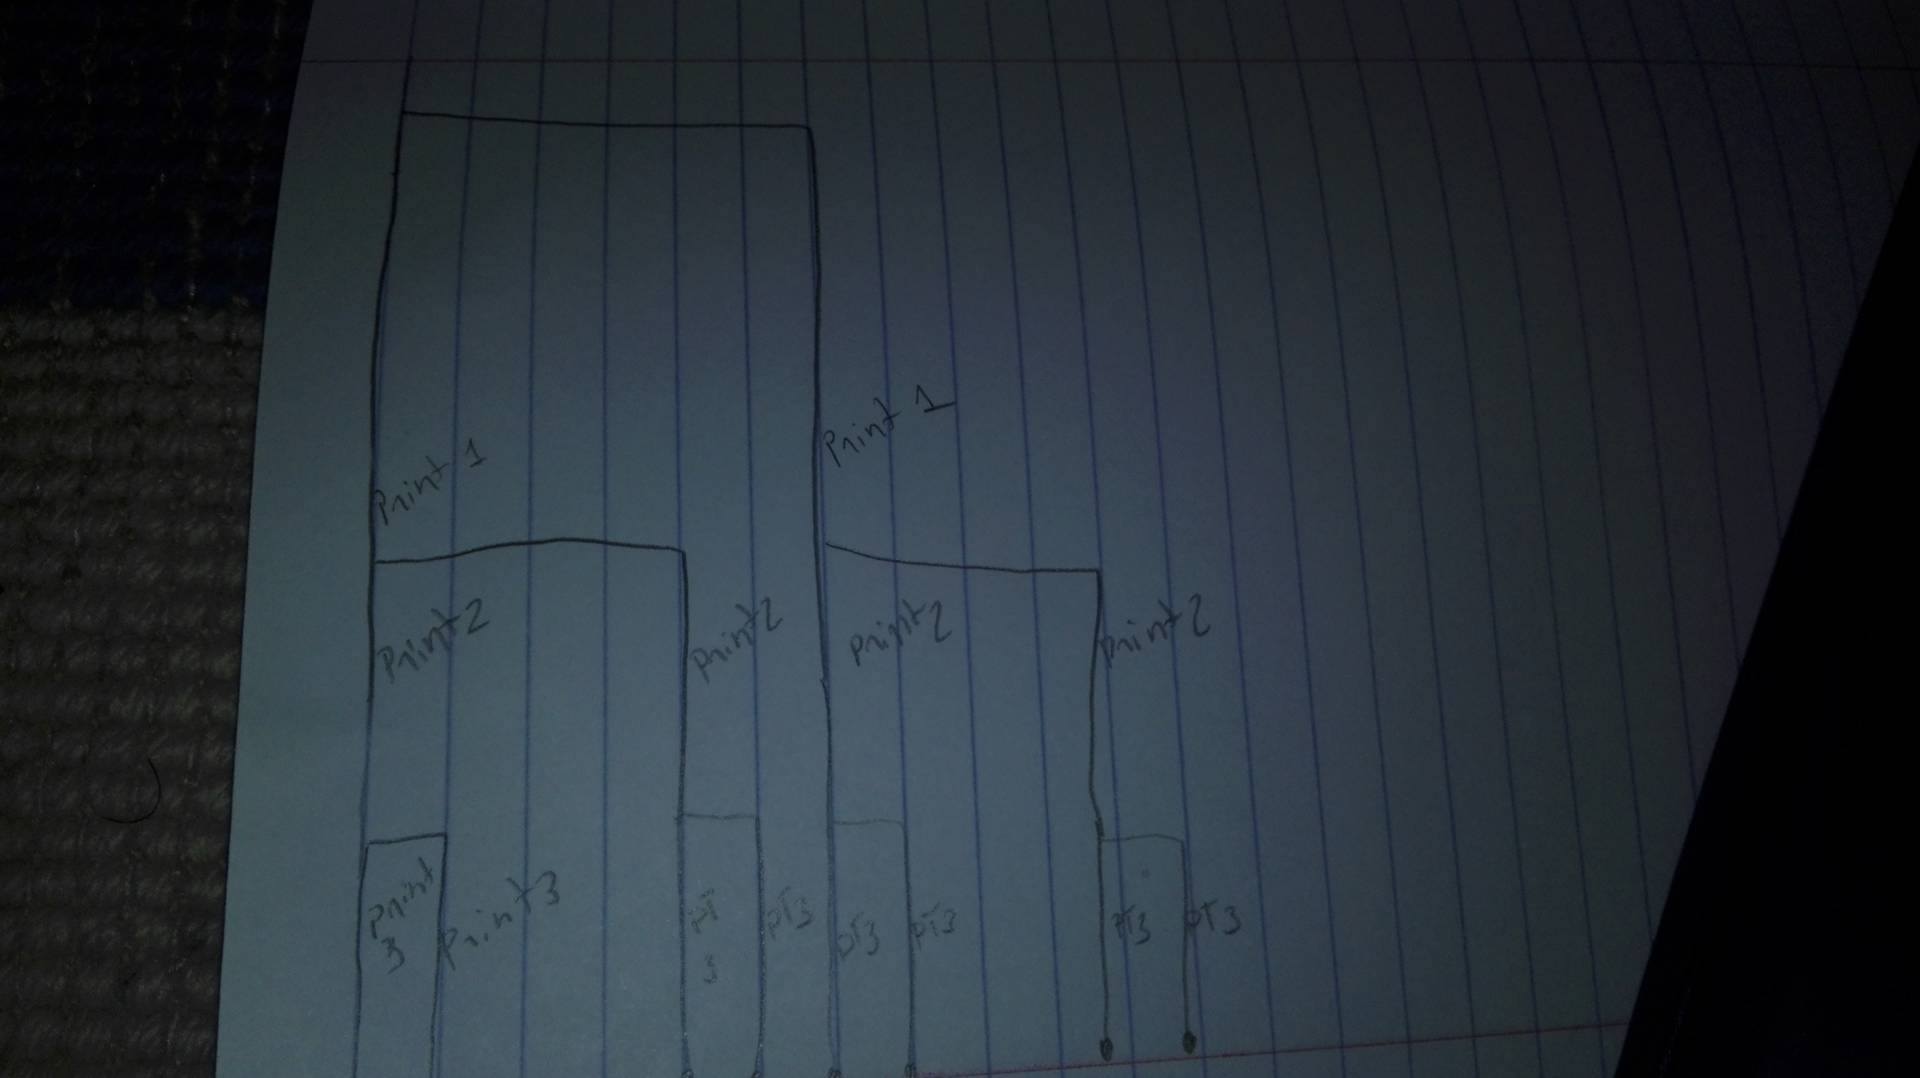 Print 1
Print 1
Print2
Print2
Print2
Print2
Print
3
Print3
PT
3
PT3
PT3
PT3
PT3
PT3